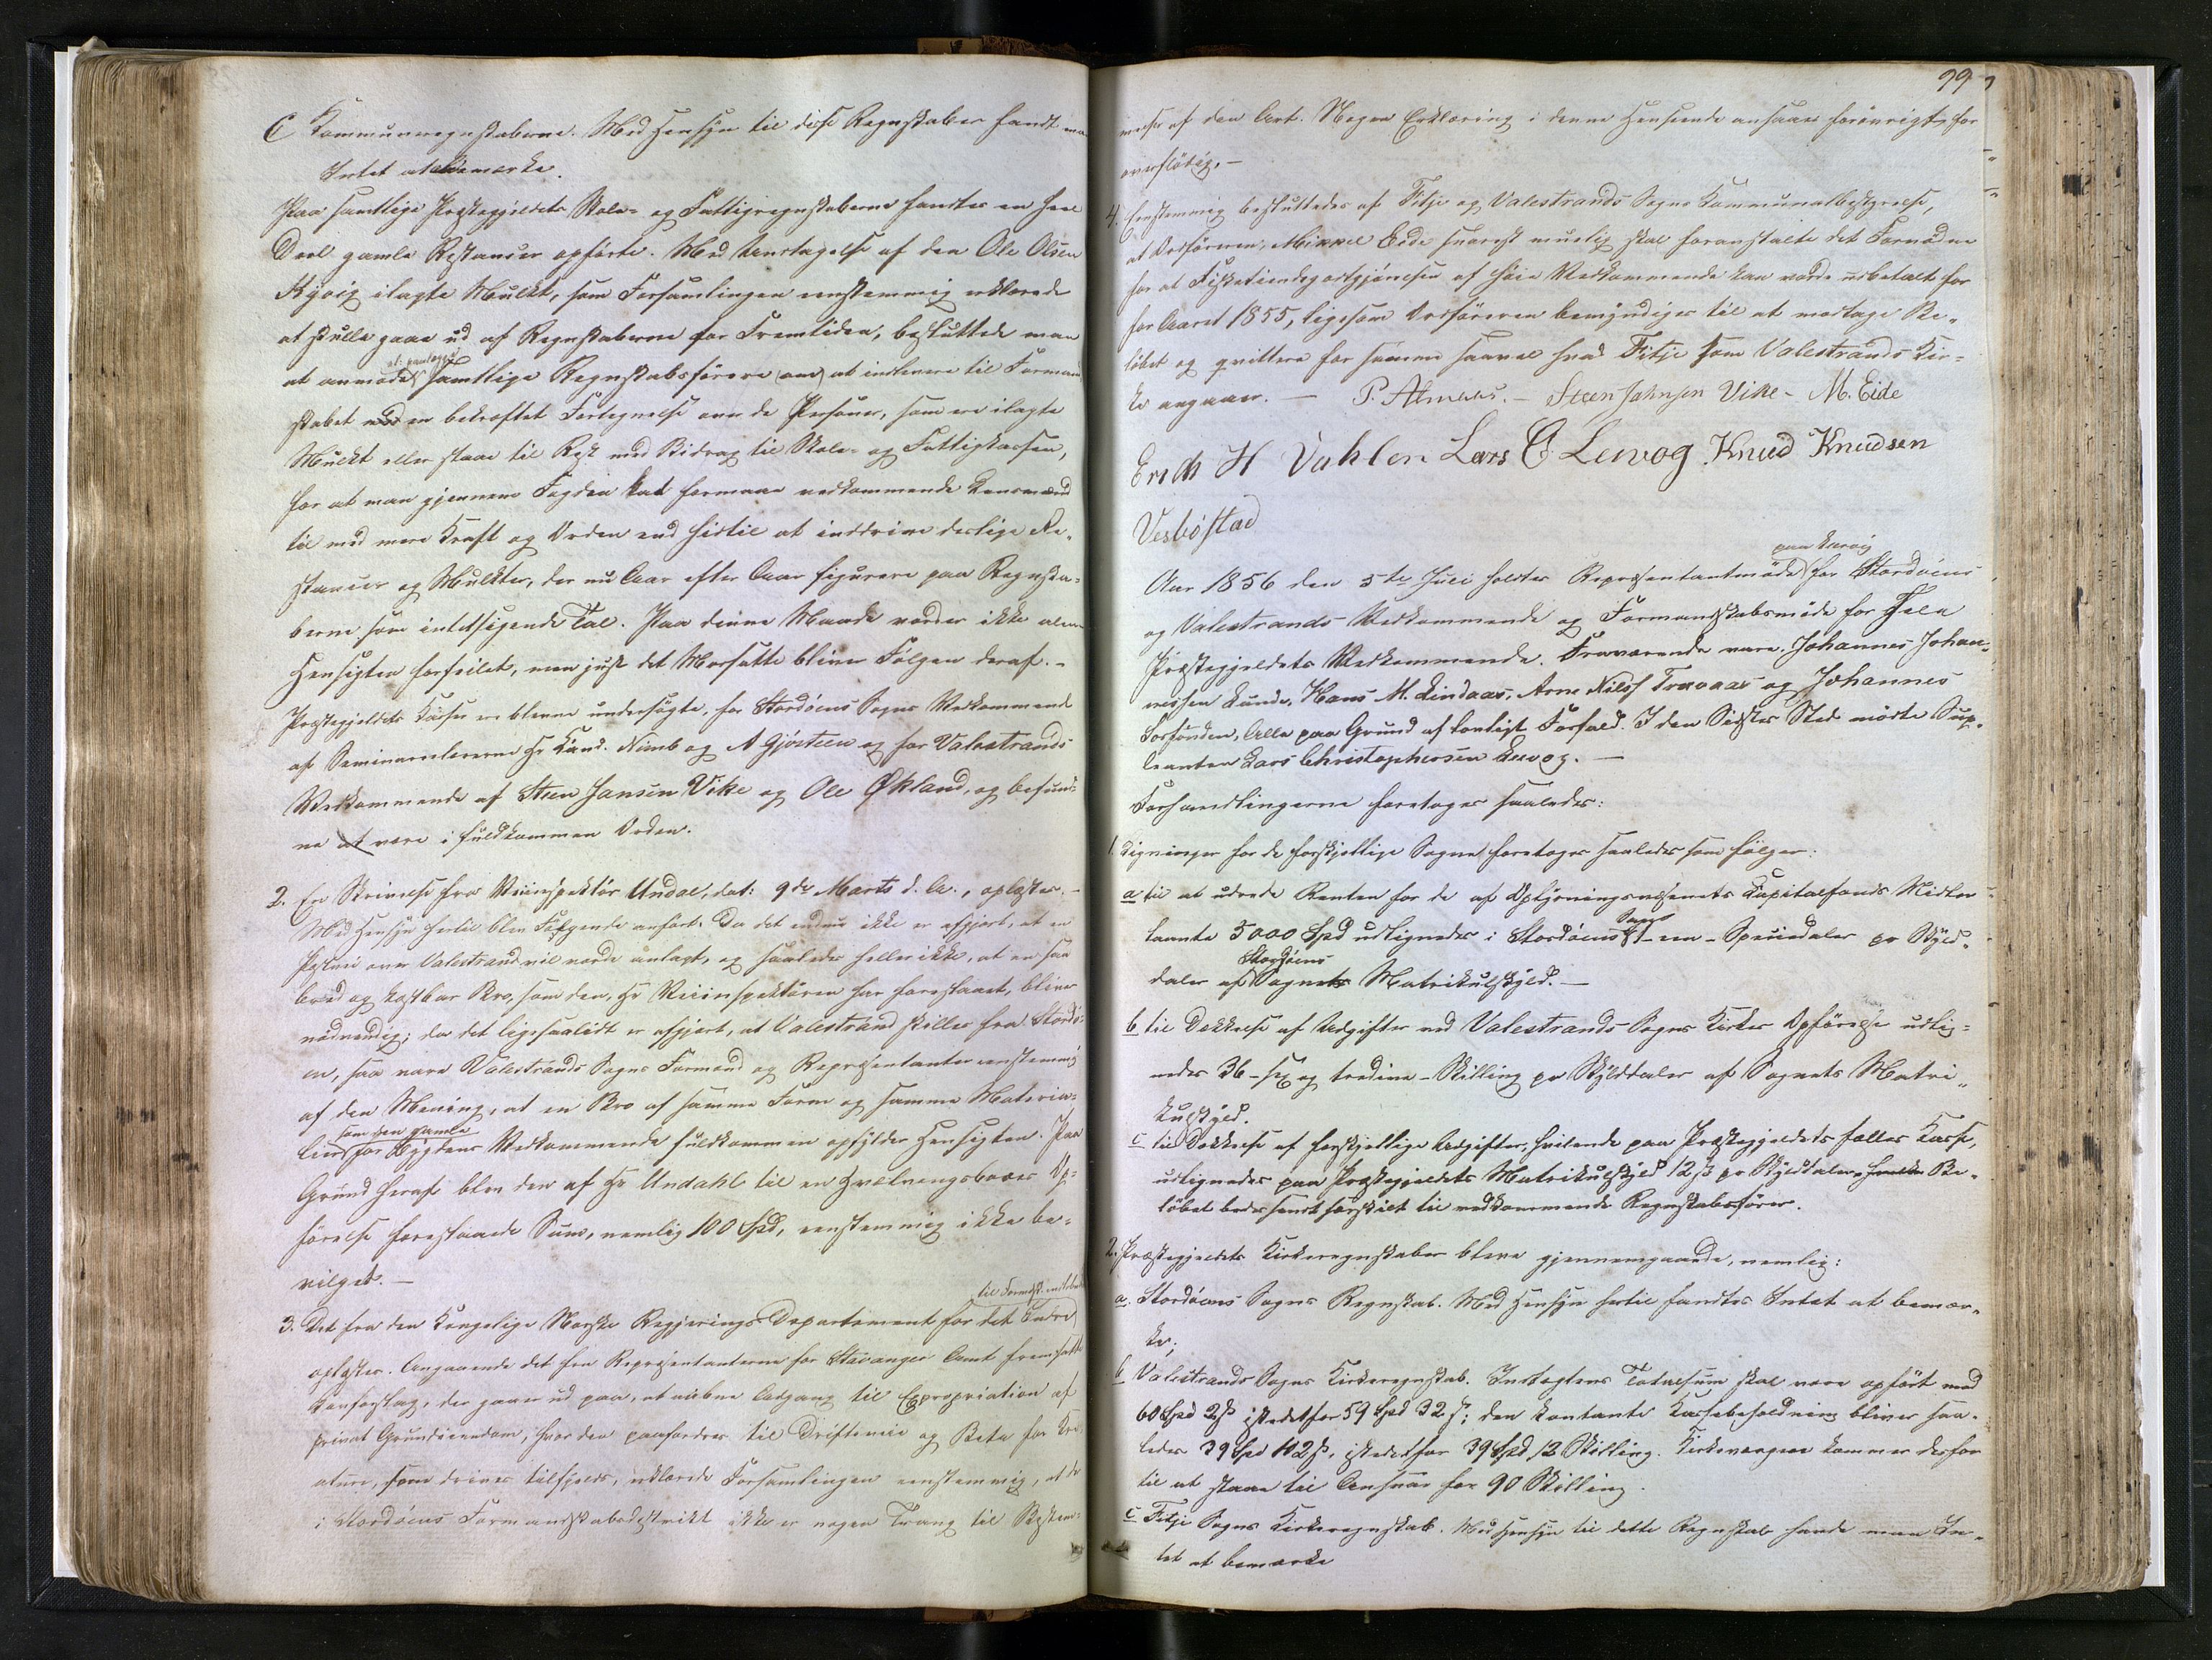 C Kommuneregnskaberne. Med Hensyn til disse Regnskaber fandt man
Intet at bemærke.
Paa samtlige Præstegjeldets Skole- og Fattigregnskaberne fandtes en heel
Deel gamle Restancer opførte. Med Undtagelse af den Ole Olsen
ilagte Mulkt, som Forsamlingen eenstemmig erklærede
at skulle gaae ud af Regnskaberne for Fremtiden, besluttede man
at anmode samtlige Regnskabsførere (om) at indlevere til Formand
skabet en bekræftet Fortegnelse over de Personer, som ere ilagte
Mulkt eller staae til Rest med Bidrag til Skole- og Fattigkassen,
for at man gjennem Fogden kat formaae vedkommende Lensmænd
til med mere Kraft og Orden end hidtil at inddrive deslige Re-
stancer og Mulkter, der nu Aar efter Aar figurere paa Regnska-
berne som intetsigende Tal. Paa denne Maade vorder ikke alene
Hensigten forfeilet, men just det Modsatte bliver Følgen deraf. -
Præstegjeldets Kasser ere blevne undersøgte, for Stordöens Sogns Vedkommende
af Seminarielærerne Hr Cand. Nimb og A Gjösteen og for Valestrands
Vedkommende af Steen Jansen Vike og Ole Økland, og befund-
ne at være i fuldkommen Orden.
2. En Skrivelse fra Veiinspektör Undal, dat: 9de Marts d. A., oplæstes. -
Med Hensyn hertil blev Følgende anført: Da det endnu ikke er afgjort, at en
Postvei over Valestrand vil vorde anlagt, og saaledes heller ikke, at en saa
bred og kostbar Bro, som den, Hr Veiinspektören har foreslaaet, bliver
nödvendig; da det ligesaalidt er afgjort, at Valestrand skilles fra Stordö-
en, saa vare Valestrands Sogns Formænd og Repræsentanter eenstemmig
af den Mening, at en Bro af samme Form og samme Materia-
som den gamle
lier for Bygdens Vedkommende fuldkommen opfylder Hensigten. Paa
Grund heraf blev den af Hr Undahl til en Hvælvingsbroes Op-
førelse foreslaaede Sum, nemlig 100 Spd, eenstemmig ikke be-
vilget. -
til Formdsk.
3. Det fra den Kongelige Norske Regjerings Departement for det Indre
oplæstes. Angaaende det fra Repræsentanterne for Stavanger Amt fremsatte
Lovforslag, der gaaer ud paa, at aabne Adgang til Expropriation af
privat Grundeiendom, hvor den paafordres til Driftevei og Beite for Kre-
aturer, som drives tilfjelds, erklærede Forsamlingen eenstemmig, at der
i Stordöens Formandskabsdistrikt ikke er nogen Trang til Bestem-
99
melse af den Art. Nogen Erklæring i denne Henseende ansaaes forövrigt for
overflödig. -
4. Eenstemmig besluttedes af Fitje og Valestrands Sogns Kommunalbestyrelse,
at Ordföreren, Mikael Eide snarest muelig skal foranstalte det Fornödne
for at Fisketiendegodtgjörelsen af Vedkommende kan vorde udbetalt for
for Aaret 1855, ligesom Ordföreren bemyndiges til at modtage Be-
löbet og qvittere for samme saavel hvad Fitje som Valestrands Kir-
ke angaaer. - P. Almaas. - Steen Jahnsen Vike - M. Eide
Erich H Vahlen Lars C Lervog Knud Knudsen
Vesböstad
paa Lervig
Aar 1856 den 5te Juli holdtes Repræsentantmöde for Stordöens
og Valestrands Vedkommende og Formandskabsmöde for Hele
Præstegjeldets Vedkommende. Fraværende vare: Johannes Johan-
nessen Lunde, Hans M. Lindaas, Arne Nilss Travaas og Johannes
Alle paa Grund af lovligt Forfald. I den Sidstes Sted mödte Sup-
leanten Lars Christophersen Lervog. -
Forhandlingerne foretoges saaledes:
1. Ligninger for de forskjellige Sogne foretoges saaledes som fölger:
a til at udrede Renten for de af Oplysningsvæsenets Kapitalfonds Midler
Sogn
laante 3000 Spd udlignedes i Stordöens 1 - een - Speciedaler pr Skyld-
Stordöens
daler af Sognets Matrikulskyld. -
b til Dækkelse af Udgifter ved Valestrands Sogns Kirkes Opförelse udlig-
nedes 36 - sex og tredive - Skilling pr Skylddaler af Sognets Matri-
kulskyld.
c til Dækkelse af forskjellige Udgifter, hvilende paa Præstegjeldets fælles Kasse,
udlignedes paa Præstegjeldets Matrikulskyld 12 ß pr Skylddaler, hvilke Be-
löbet bedes sendt særskilt til vedkommende Regnskabsförer.
2. Præstegjeldets Kirkeregnskaber bleve gjennemgaaede, nemlig:
a. Stordöens Sogns Regnskab. Med Hensyn hertil fandtes Intet at bemær-
ke;
b Valestrands Sogns Kirkeregnskab. Indtægtens Totalsum skal være opfört med
60 Spd 2 ß istedetfor 59 Spd 32 ß; den kontante Kassebeholdning bliver saa-
ledes 39 Spd 102 ß, istedetfor 39 Spd 12 Skilling. Kirkevergen kommer derfor
til at staae til Ansvar for 90 Skilling.
c Fitje Sogns Kirkeregnskab. Med Hensyn til dette Regnskab havde man In-
tet at bemærke